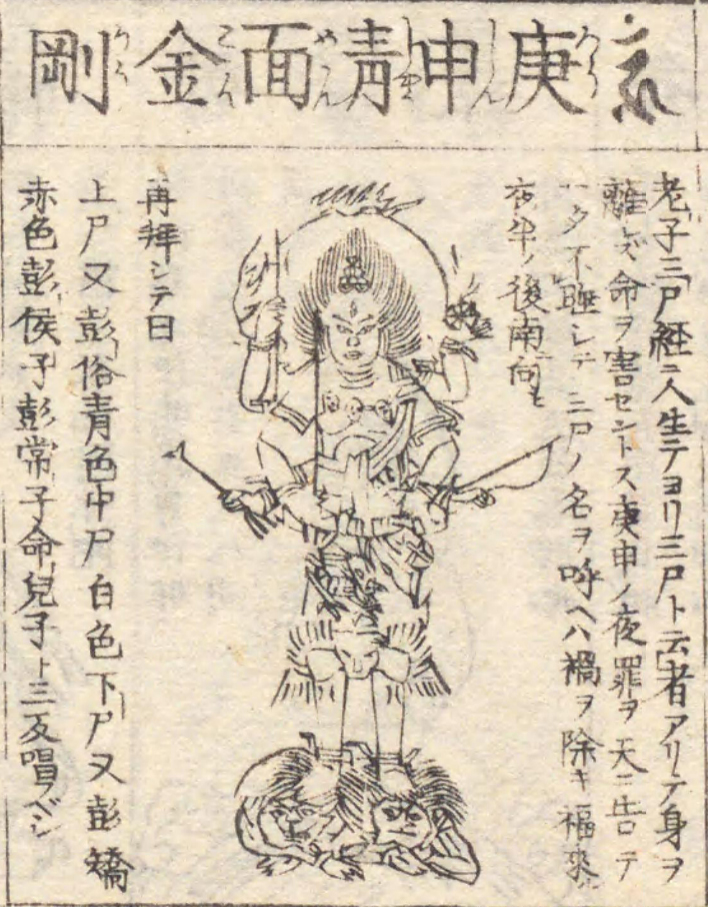 庚申青面金剛
かうしんしやうめんこんがう
老子三尸経ニ人生テヨリ三尸ト云者アリテ身ヲ
離レズ命ヲ害セントス庚申ノ夜罪ヲ天ニ告ロテ
ハタ不睡シテ三尸ノ名ヲ呼ヘハ禍ヲ除キ福来
夜半ノ後南向ヒ
再拜シテ曰
上尸又彭俗青色中尸白色下尸又彭矯
赤色彭侯子彭常子命兒子ト三反唱フベシ